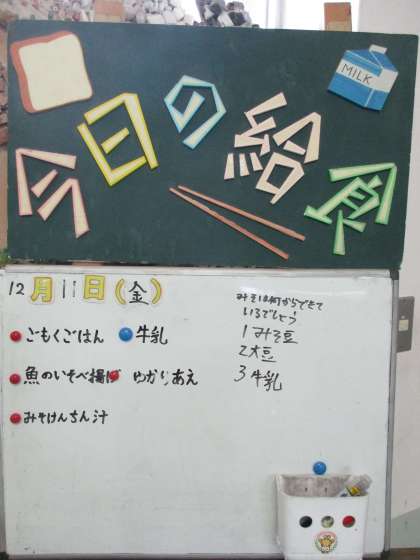 今日の給食
MILK
12月11日(金)
ごもくごはん 牛乳
魚のいそべ揚げ ゆかりあえ
みそけんちん汁
みそは何からできて
いるでしょう
1みそ豆
2大豆
3牛乳